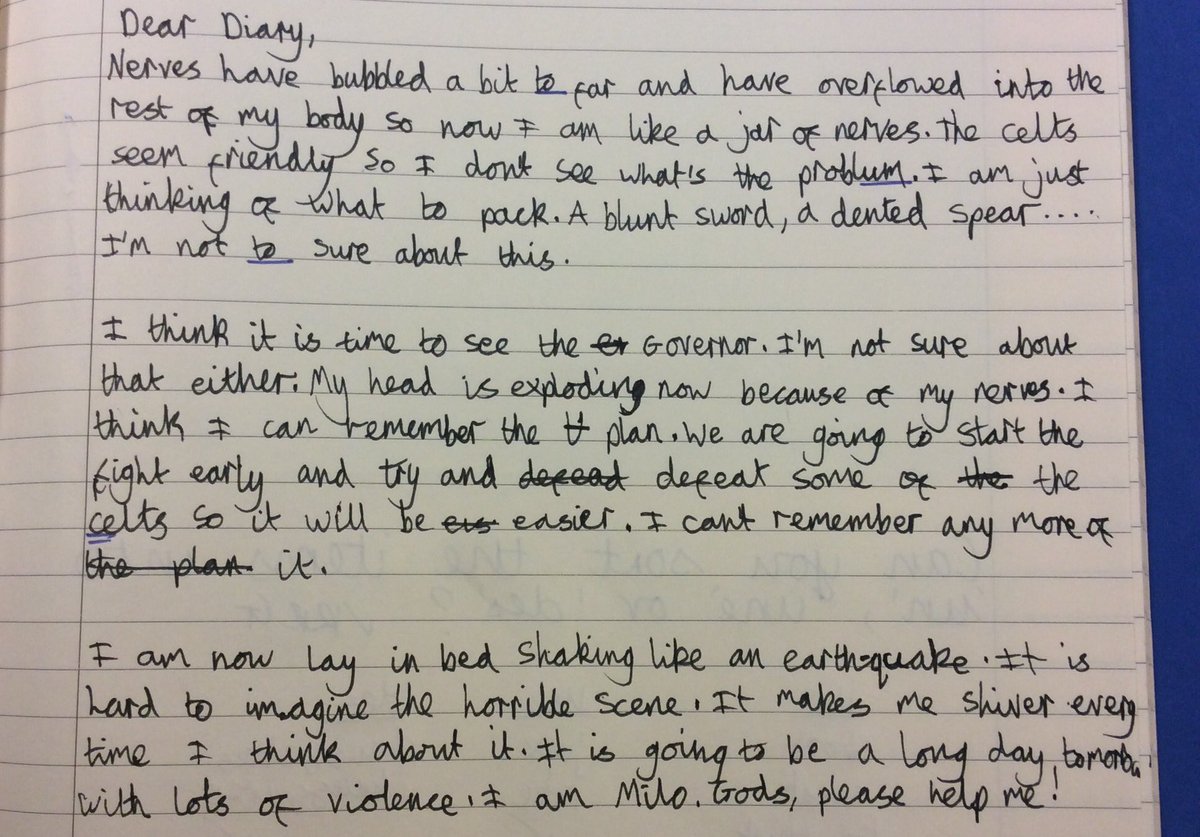 Dear Diary,
Nerves have bubbled a bit to far and have overflowed into the
rest of my body so now I am like a jar of nerves. The celts
seem friendly so I dont see what's the problum. I am just
thinking of what to pack. A blunt sword, a dented spear....
I'm not to sure about this.
I think it is time to see the Governor. I'm not sure about
that either. My head is exploding now because of my nerves. I
think I can remember the plan. We are going to start the
fight early and try and defead defeat some of the the
celts so it will be eis easier. I cant remember any more of
the plan it.
I am now lay in bed shaking like an earthquake. It is
hard to imagine the horrible scene. It makes me shiver every
time I think about it. It is going to be a long day, tomorow
with lots of violence. I am Milo. Gods, please help me!